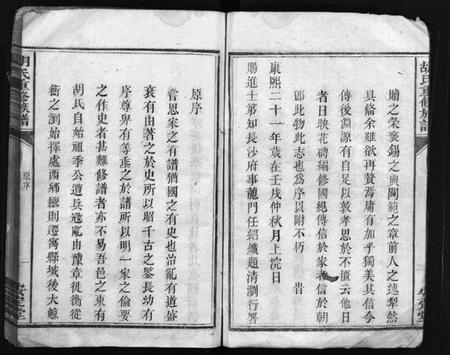 胡氏重修族譜
贈之榮褒錫之典閫範之章前人之述犁然
具備余雖欲再贅焉庸有加乎獨美其信今
傳後淵源有自足以敦孝思於不匱云他日
者日映花磚編修國乘傳信於家者信於朝
即此物此志也為序以附不朽 皆
康熙二十一年歲在壬戌仲秋月上浣日
賜進士第知長沙府事龍門任紹爌題清瀏行署
原序
嘗思家之有譜猶國之有史也治亂有道盛
衰有由著之於史所以昭千古之鑒長幼有
序尊卑有等垂之於譜所以明一家之倫要
之作史者甚難修譜者亦不易吾邑之東有
胡氏自始祖季公遭兵寇亂由豫章徙衡從
衡之瀏始擇處西鄉繼則遷寓縣城後大鯨
胡氏重修族譜
原序
一
安定堂